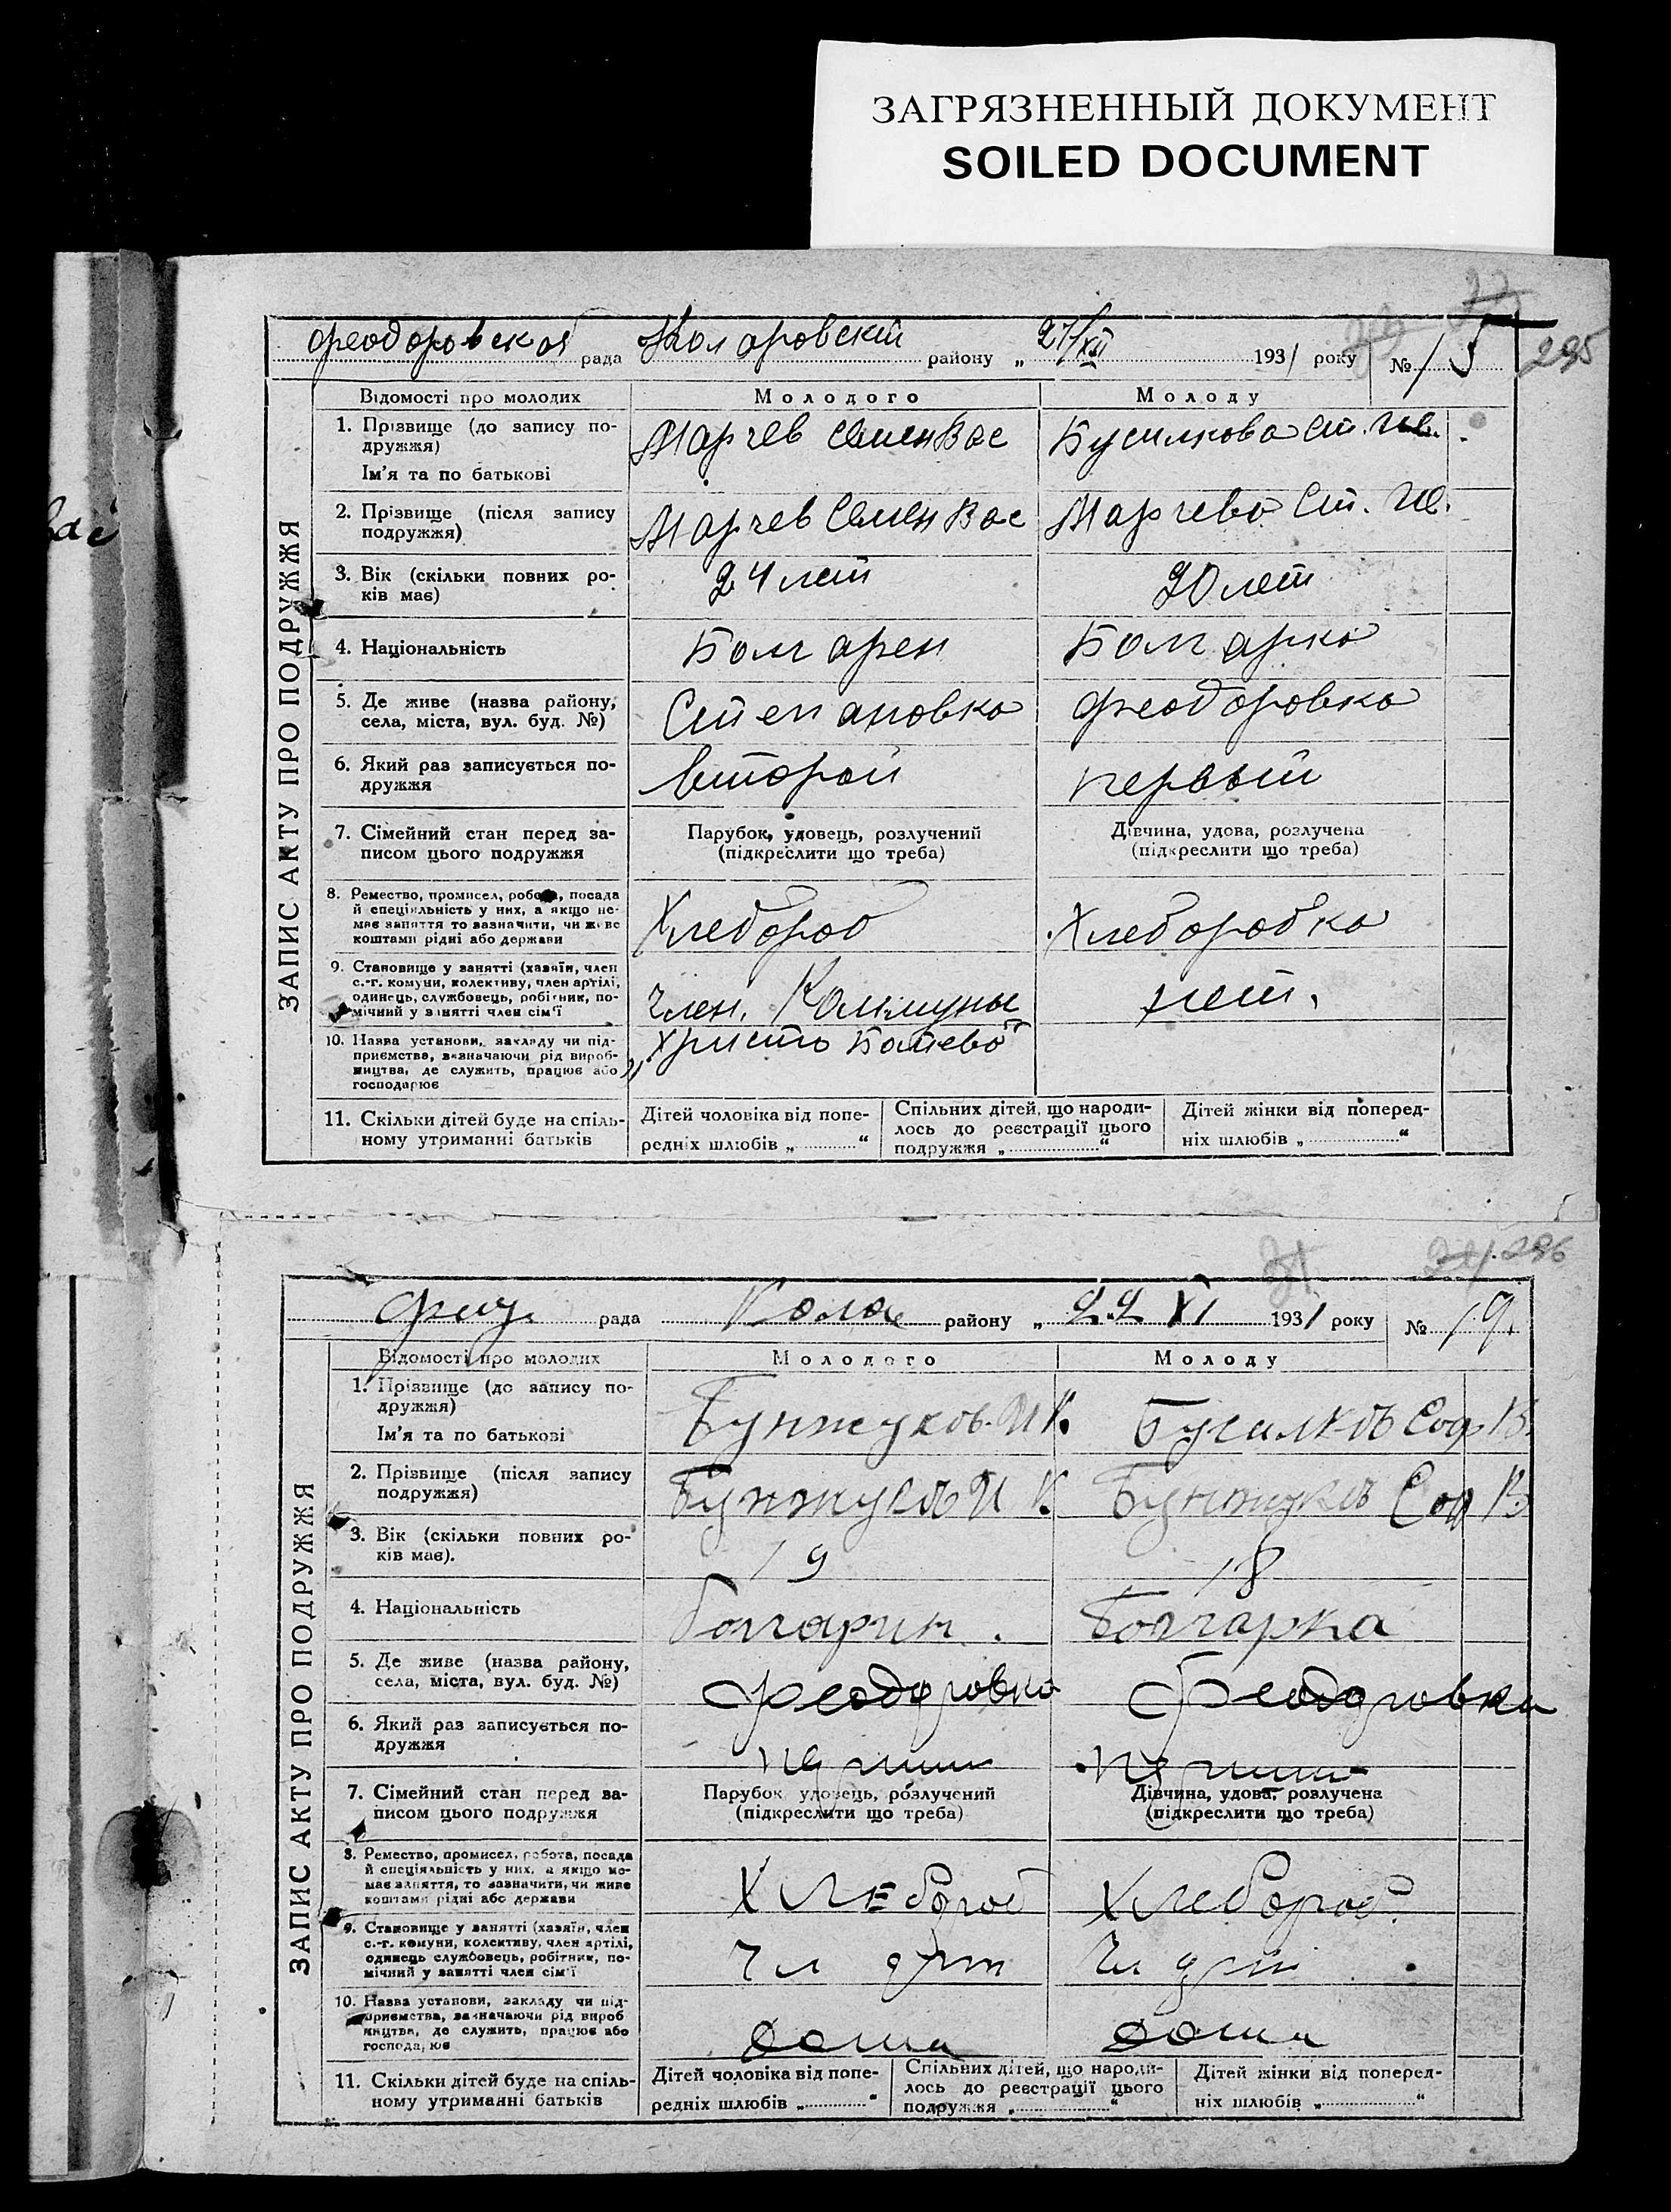 ЗАГРЯЗНЕННЫЙ ДОКУМЕНТ
SOILED DOCUMENT
295
Феодоровской рада Коларовский району „ 27/XII 1931 року № 15
ЗАПИС АКТУ ПРО ПОДРУЖЖЯ
Відомості про молодих Молодого Молоду
1. Прізвище (до запису по-
дружжя)
Ім'я та по батькові
Марчев Семен Вас Бусилкова Ст. Ив.
2. Прізвище (після запису
подружжя)
Марчев Семен Вас Марчева Ст. Ив.
3. Вік (скільки повних ро-
ків має)
24 лет 20 лет
4. Національність Болгарен Болгарка
5. Де живе (назва району,
села, міста, вул. буд. №)
Степановка Феодоровка
6. Який раз записується по-
дружжя
второй первый
7. Сімейний стан перед за-
писом цього подружжя
Парубок, удовець, розлучений
(підкреслити що треба)
Дівчина, удова, розлучена
(підкреслити що треба)
8. Ремество, промисел, робота, посада
й спеціяльність у них, а якщо не-
має заняття то зазначити, чи живе
коштами рідні або держави
Хлебороб Хлеборобка
9. Становище у занятті (хазяїн, член
с.-г. комуни, колективу, член артілі,
одинець, службовець, робітник, по-
мічний у занятті член сім'ї
член. Коммуны нет.
10. Назва установи, закладу чи під-
приємства, зазначаючи рід вироб-
ництва, де служить, працює або
господарює
„Христо Ботево"
11. Скільки дітей буде на спіль-
ному утриманні батьків
Дітей чоловіка від попе-
редніх шлюбів „ “
Спільних дітей, що народи-
лось до реєстрації цього
подружжя „ “
Дітей жінки від поперед-
ніх шлюбів „ “
296
рада Кола району „ 22 XI 1931 року № 19.
ЗАПИС АКТУ ПРО ПОДРУЖЖЯ
Відомості про молодих Молодого Молоду
1. Прізвище (до запису по-
дружжя)
Ім'я та по батькові
Бунжуков И К. Бусилков Соф В.
2. Прізвище (після запису
подружжя)
Бунжуков И К Бунжуков Соф В
3. Вік (скільки повних ро-
ків має).
19 18
4. Національність Болгарин. Болгарка
5. Де живе (назва району,
села, міста, вул. буд. №)
Феодоровка Феодоровка
6. Який раз записується по-
дружжя
7. Сімейний стан перед за-
писом цього подружжя
Парубок, удовець, розлучений
(підкреслити що треба)
Дівчина, удова, розлучена
(підкреслити що треба)
8. Ремество, промисел, робота, посада
й спеціяльність у них, а якщо не-
має заняття, то зазначити, чи живе
коштами рідні або держави
Хлебороб Хлебороб
9. Становище у занятті (хазяїн, член
с.-г. комуни, колективу, член артілі,
одинець службовець, робітник, по-
мічний у занятті член сім'ї
Чл арт Чл арт
10. Назва установи, закладу чи під-
приємства, зазначаючи рід вироб
ництва, де служить, працює або
господарює
дома дома
11. Скільки дітей буде на спіль-
ному утриманні батьків
Дітей чоловіка від попе-
редніх шлюбів „ “
Спільних дітей, що народи-
лось до реєстрації цього
подружжя „ “
Дітей жінки від поперед-
ніх шлюбів „ “